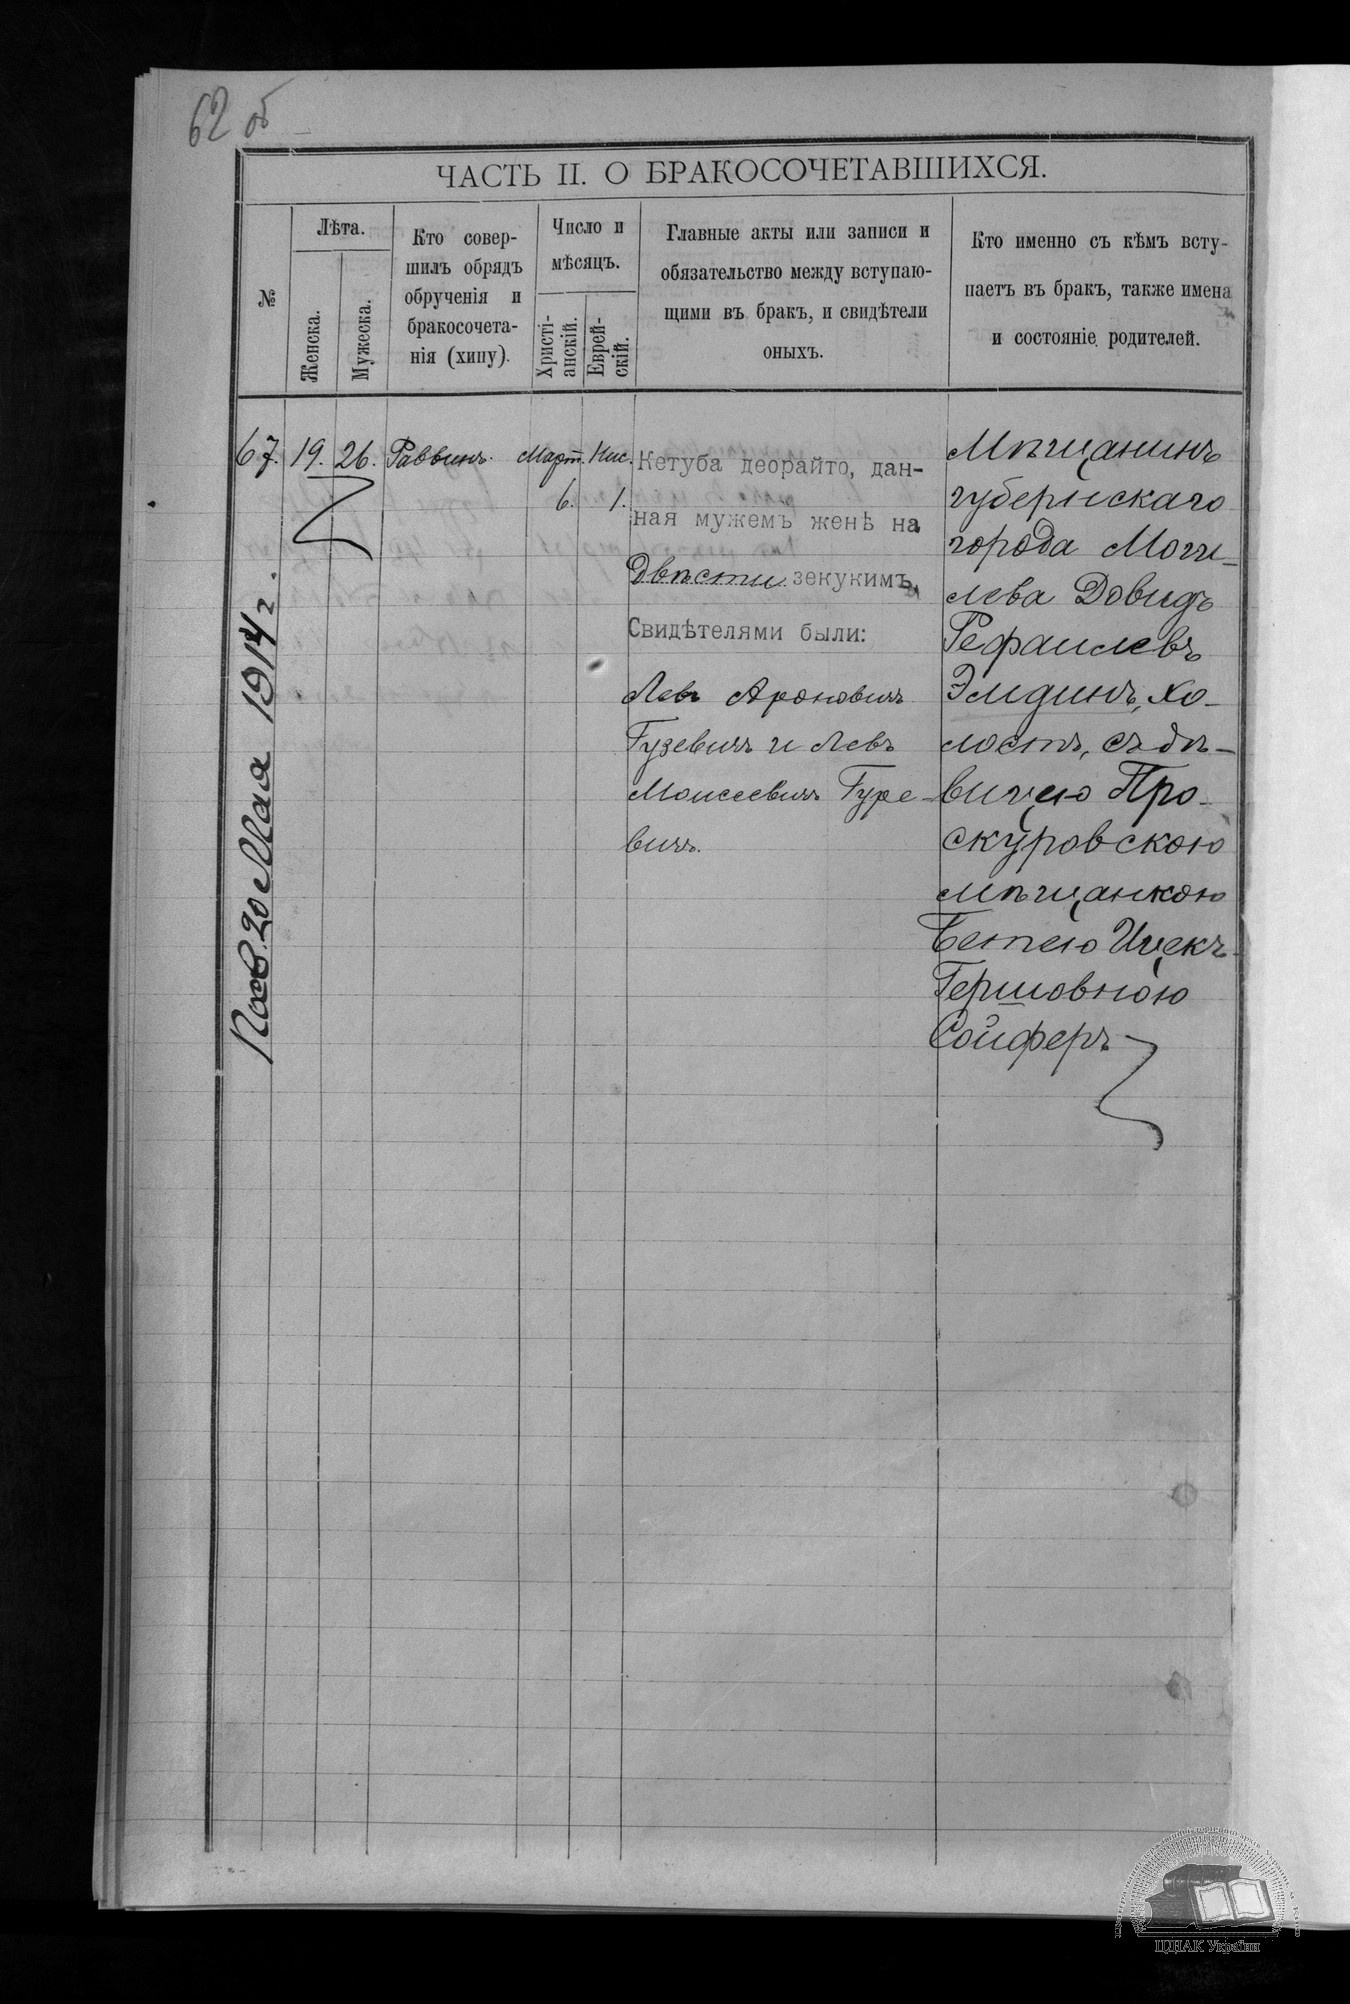 62 об
ЧАСТЬ II. О БРАКОСОЧЕТАВШИХСЯ.
№
Лѣта.
Женска.
Мужеска.
Кто совер-
шилъ обрядъ
обрученія и
бракосочета-
нія (хипу).
Число и
мѣсяцъ.
Христі-
анскій.
Еврей-
скій.
Главные акты или записи и
обязательство между вступаю-
щими въ бракъ, и свидѣтели
оныхъ.
Кто именно съ кѣмъ всту-
паетъ въ бракъ, также имена
и состояніе родителей.
67. 19. 26. Раввинъ. Март. Нис.
6. 1.
Кетуба деорайто, дан-
ная мужемъ женѣ на
Двѣсти зекукимъ,
Свидѣтелями были:
Левъ Ароновичъ
Гузевичъ и Левъ
Моисеевичъ Гуре-
вичъ.
Мѣщанинъ
губернскаго
города Моги-
лева Довидъ
Рефаилевъ
Элидинъ, хо-
лостъ, съ дѣ-
вицею Про-
скуровскою
мѣщанкою
Бетею Ицекъ-
Гершовною
Сойферъ
20 Мая 1914 г.
ЦДІАК України